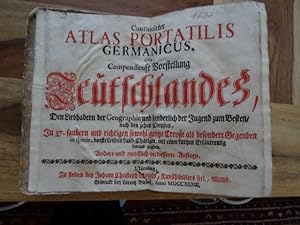 Continuirter
ATLAS PORTATILIS
GERMANICUS,
Oder
Compendieuse Vorstellung
Teutschlandes,
Den Liebhabern der Geographie und sonderlich der Jugend zum Besten,
nach den zehen Creysen,
In 37. saubern und richtigen sowohl gantze Creyse als besondere Gegenden
vorstellenden Land-Chärtgen, mit einer kurtzen Erläuterung
heraus gegeben.
Andere und mercklich verbesserte Auflage.
Nürnberg,
Zu finden bey Johann Christoph Weigels, Kunsthändlers seel. Wittib.
Gedruckt bey Lorenz Bieling, Anno MDCCXXXIII.